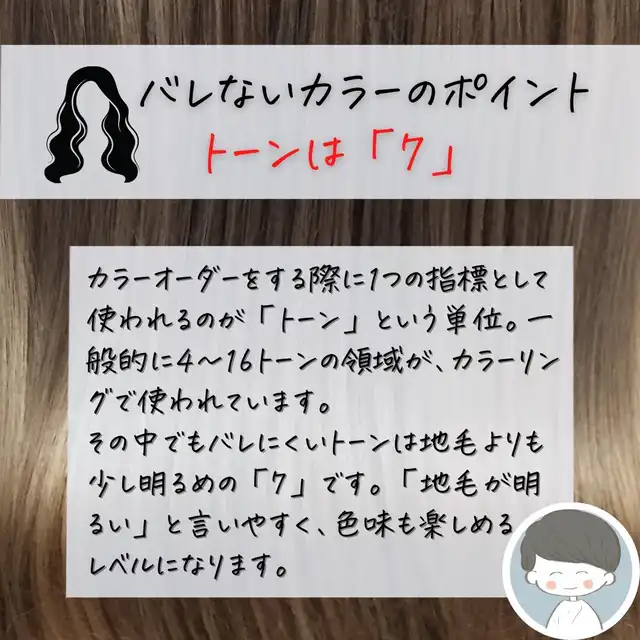 バレないカラーのポイント
トーンは「7」
カラーオーダーをする際に1つの指標として
使われるのが「トーン」という単位。一
般的に4〜16トーンの領域が、カラーリン
グで使われています。
その中でもバレにくいトーンは地毛よりも
少し明るめの「7」です。「地毛が明
るい」と言いやすく、色味も楽しめる
レベルになります。